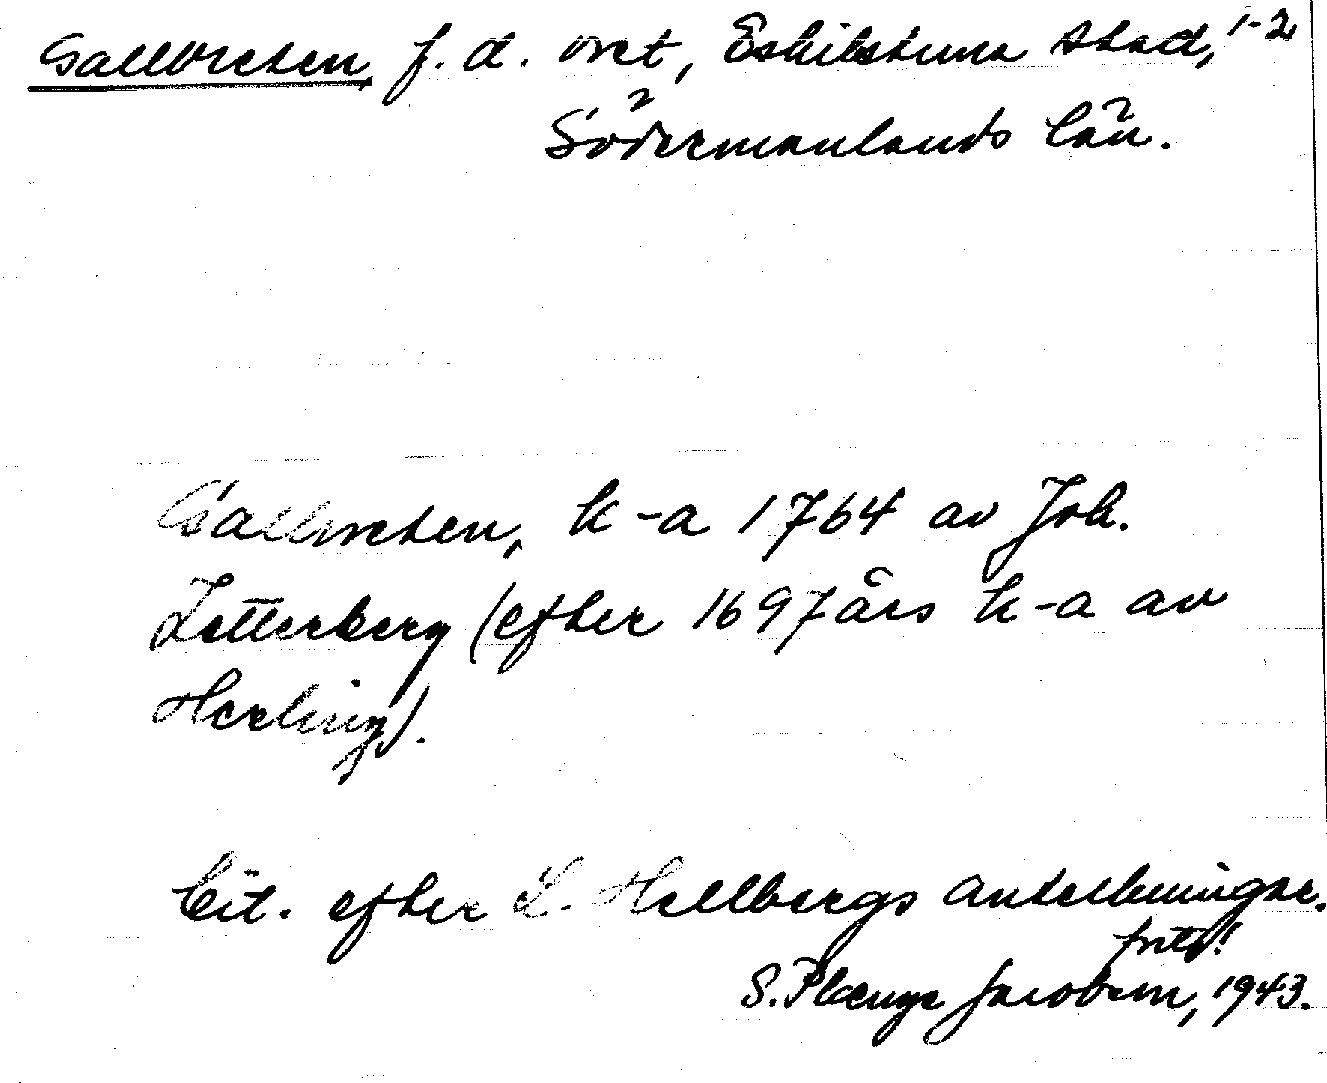 Gallvreten, f. d. vret, Eskilstuna stad, 1-2
Södermanlands län.
Gallvreten, k-a 1764 av Joh.
Zetterberg (efter 1697 års k-a av
Herling).
Cit. efter L. Hellbergs anteckningar.
forts!
S. Plænge Jacobson, 1943.